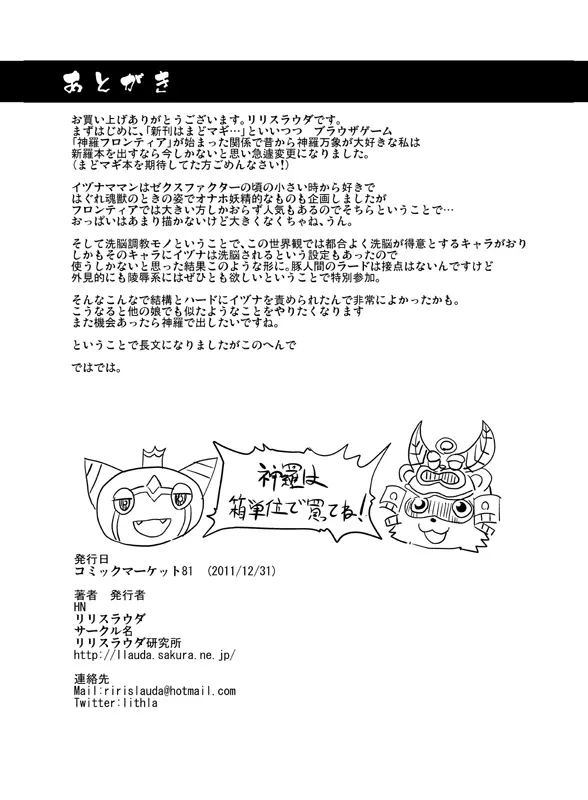 あとがき
お買い上げありがとうございます。リリスラウダです。
まずはじめに、「新刊はまどマギ…」といいつつ　ブラウザゲーム
「神羅フロンティア」が始まった関係で昔から神羅万象が大好きな私は
新羅本を出すなら今しかないと思い急遽変更になりました。
（まどマギ本を期待してた方ごめんなさい！）
イヅナママンはゼクスファクターの頃の小さい時から好きで
はぐれ魂獣のときの姿でオナホ妖精的なものも企画しましたが
フロンティアでは大きい方しかおらず人気もあるのでそちらということで…
おっぱいはあまり描かないけど大きくなくちゃね、うん。
そして洗脳調教モノということで、この世界観では都合よく洗脳が得意とするキャラがおり
しかもそのキャラにイヅナは洗脳されるという設定もあったので
使うしかないと思った結果このような形に。豚人間のラードは接点はないんですけど
外見的にも陵辱系にはぜひとも欲しいということで特別参加。
そんなこんなで結構とハードにイヅナを責められたんで非常によかったかも。
こうなると他の娘でも似たようなことをやりたくなります
また機会あったら神羅で出したいですね。
ということで長文になりましたがこのへんで
ではでは。
神羅は
箱単位で買ってね！
発行日
コミックマーケット81　(2011/12/31)
著者　発行者
HN
リリスラウダ
サークル名
リリスラウダ研究所
http://llauda.sakura.ne.jp/
連絡先
Mail:ririslauda@hotmail.com
Twitter:lithla